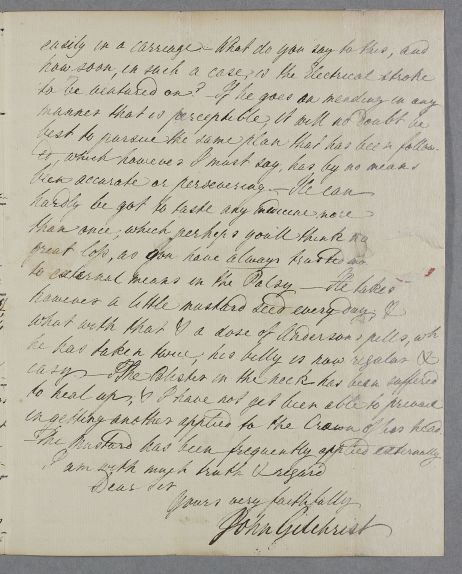 easily in a carriage – What do you say to this, and
how soon, in such a case, is the Electrical stroke
to be ventured on? – If he goes on mending in any
manner that is perceptible, it will no doubt be
best to pursue the same plan that has been follow-
ed, which however I must say, has by no means
been accurate or persevering. – He can
hardly be got to taste any medicine more
than once, which perhaps you'll think no
great loss, as you have always trusted
to external means in the Palsy – He takes
however a little mustard seed every day, &
what with that & a dose of Andersons pills, wh
he has taken twice, his belly is now regular &
easy – The Blister in the neck has been suffered
to heal up, & I have not yet been able to prevail
in getting another applied to the Crown of his head
The Mustard has been frequently applied externally
I am with much truth & regard
Dear Sir
Yours very faithfully
John Gilchrist